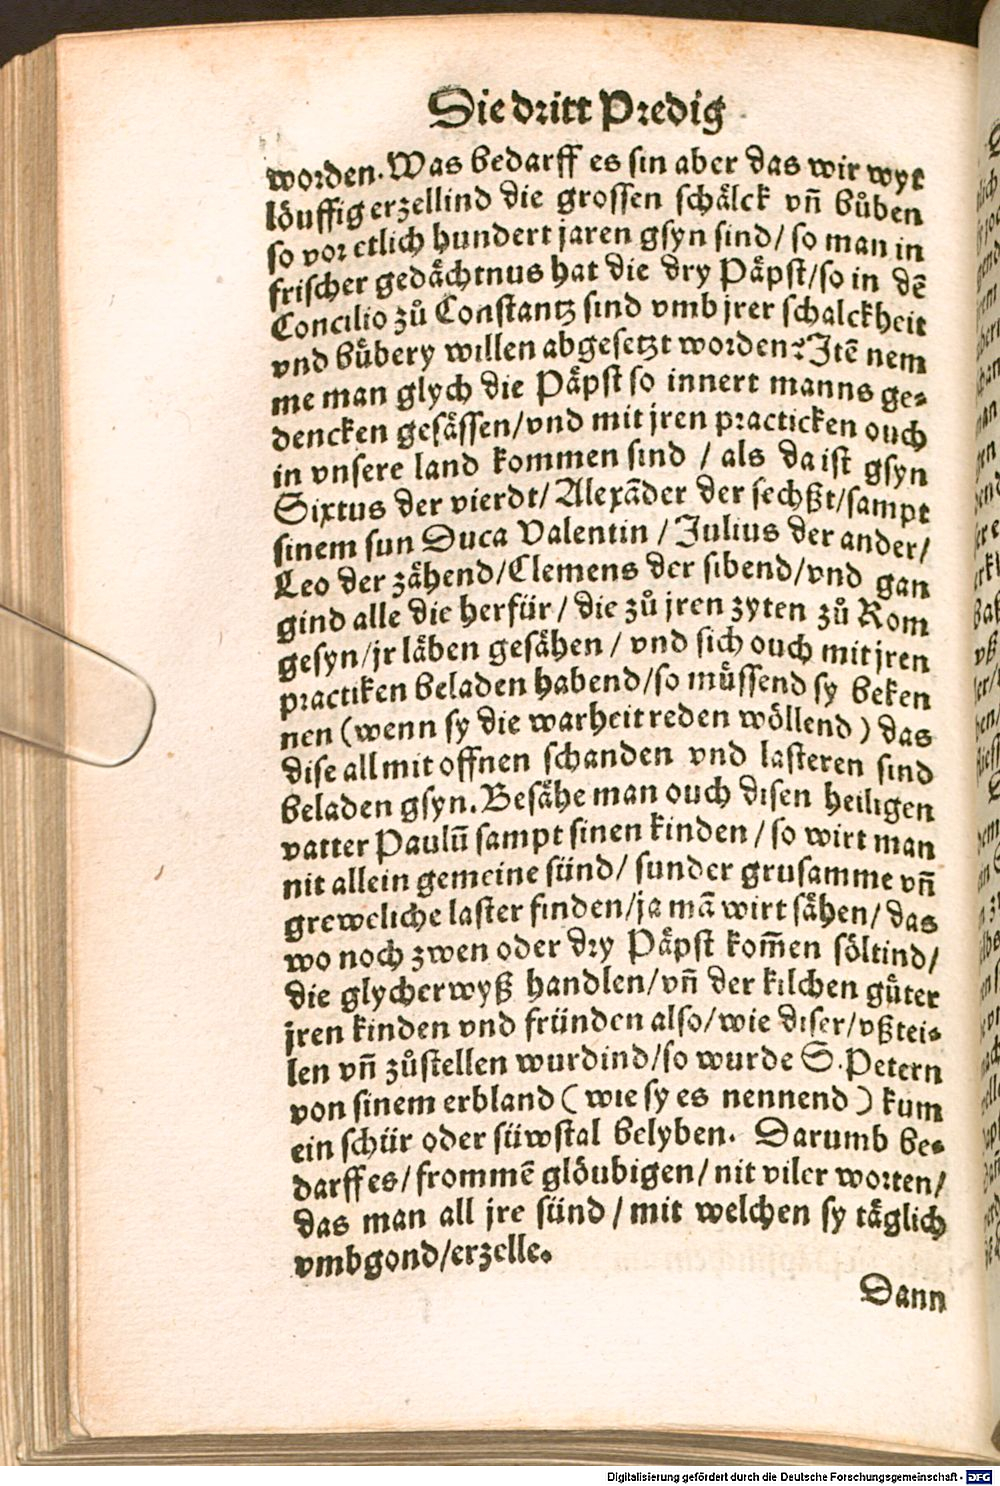 Die dritt Predig
worden. Was bedarff es sin aber das wir wyt
löuffig erzellind die grossen schälck vn̄ bůben
so vor etlich hundert jaren gsyn sind/ so man in
frischer gedächtnus hat die dry Päpst/so in dē
Concilio zů Constantz sind vmb jrer schalckheit
vnd bůbery willen abgesetzt worden? Itē nem
me man glych die Päpst so innert manns ge⸗
dencken gesässen/vnd mit jren practicken ouch
in vnsere land kommen sind / als da ist gsyn
Sixtus der vierdt/ Alexāder der sechßt/sampt
sinem sun Duca Valentin / Julius der ander/
Leo der zähend/Clemens der sibend/vnd gan
gind alle die herfür/ die zů jren zyten zů Rom
gesyn/jr läben gesähen / vnd sich ouch mit jren
practiken beladen habend/so müssend sy beken
nen (wenn sy die warheit reden wöllend) das
dise all mit offnen schanden vnd lasteren sind
beladen gsyn. Besähe man ouch disen heiligen
vatter Paulū sampt sinen kinden / so wirt man
nit allein gemeine sünd/ sunder grusamme vn̄
greweliche laster finden/ja mā wirt sähen/ das
wo noch zwen oder dry Päpst kom̄en söltind/
die glycher wyß handlen/vn̄ der kilchen gůter
jren kinden vnd fründen also/wie diser/vßtei⸗
len vn̄ zůstellen wurdind/so wurde S. Petern
von sinem erbland (wie sy es nennend) kum
ein schür oder süwstal belyben. Darumb be⸗
darff es/ frommē glöubigen/ nit viler worten/
das man all jre sünd / mit welchen sy täglich
vmbgond/erzelle.
Dann
Digitalisierung gefördert durch die Deutsche Forschungsgemeinschaft - DFG